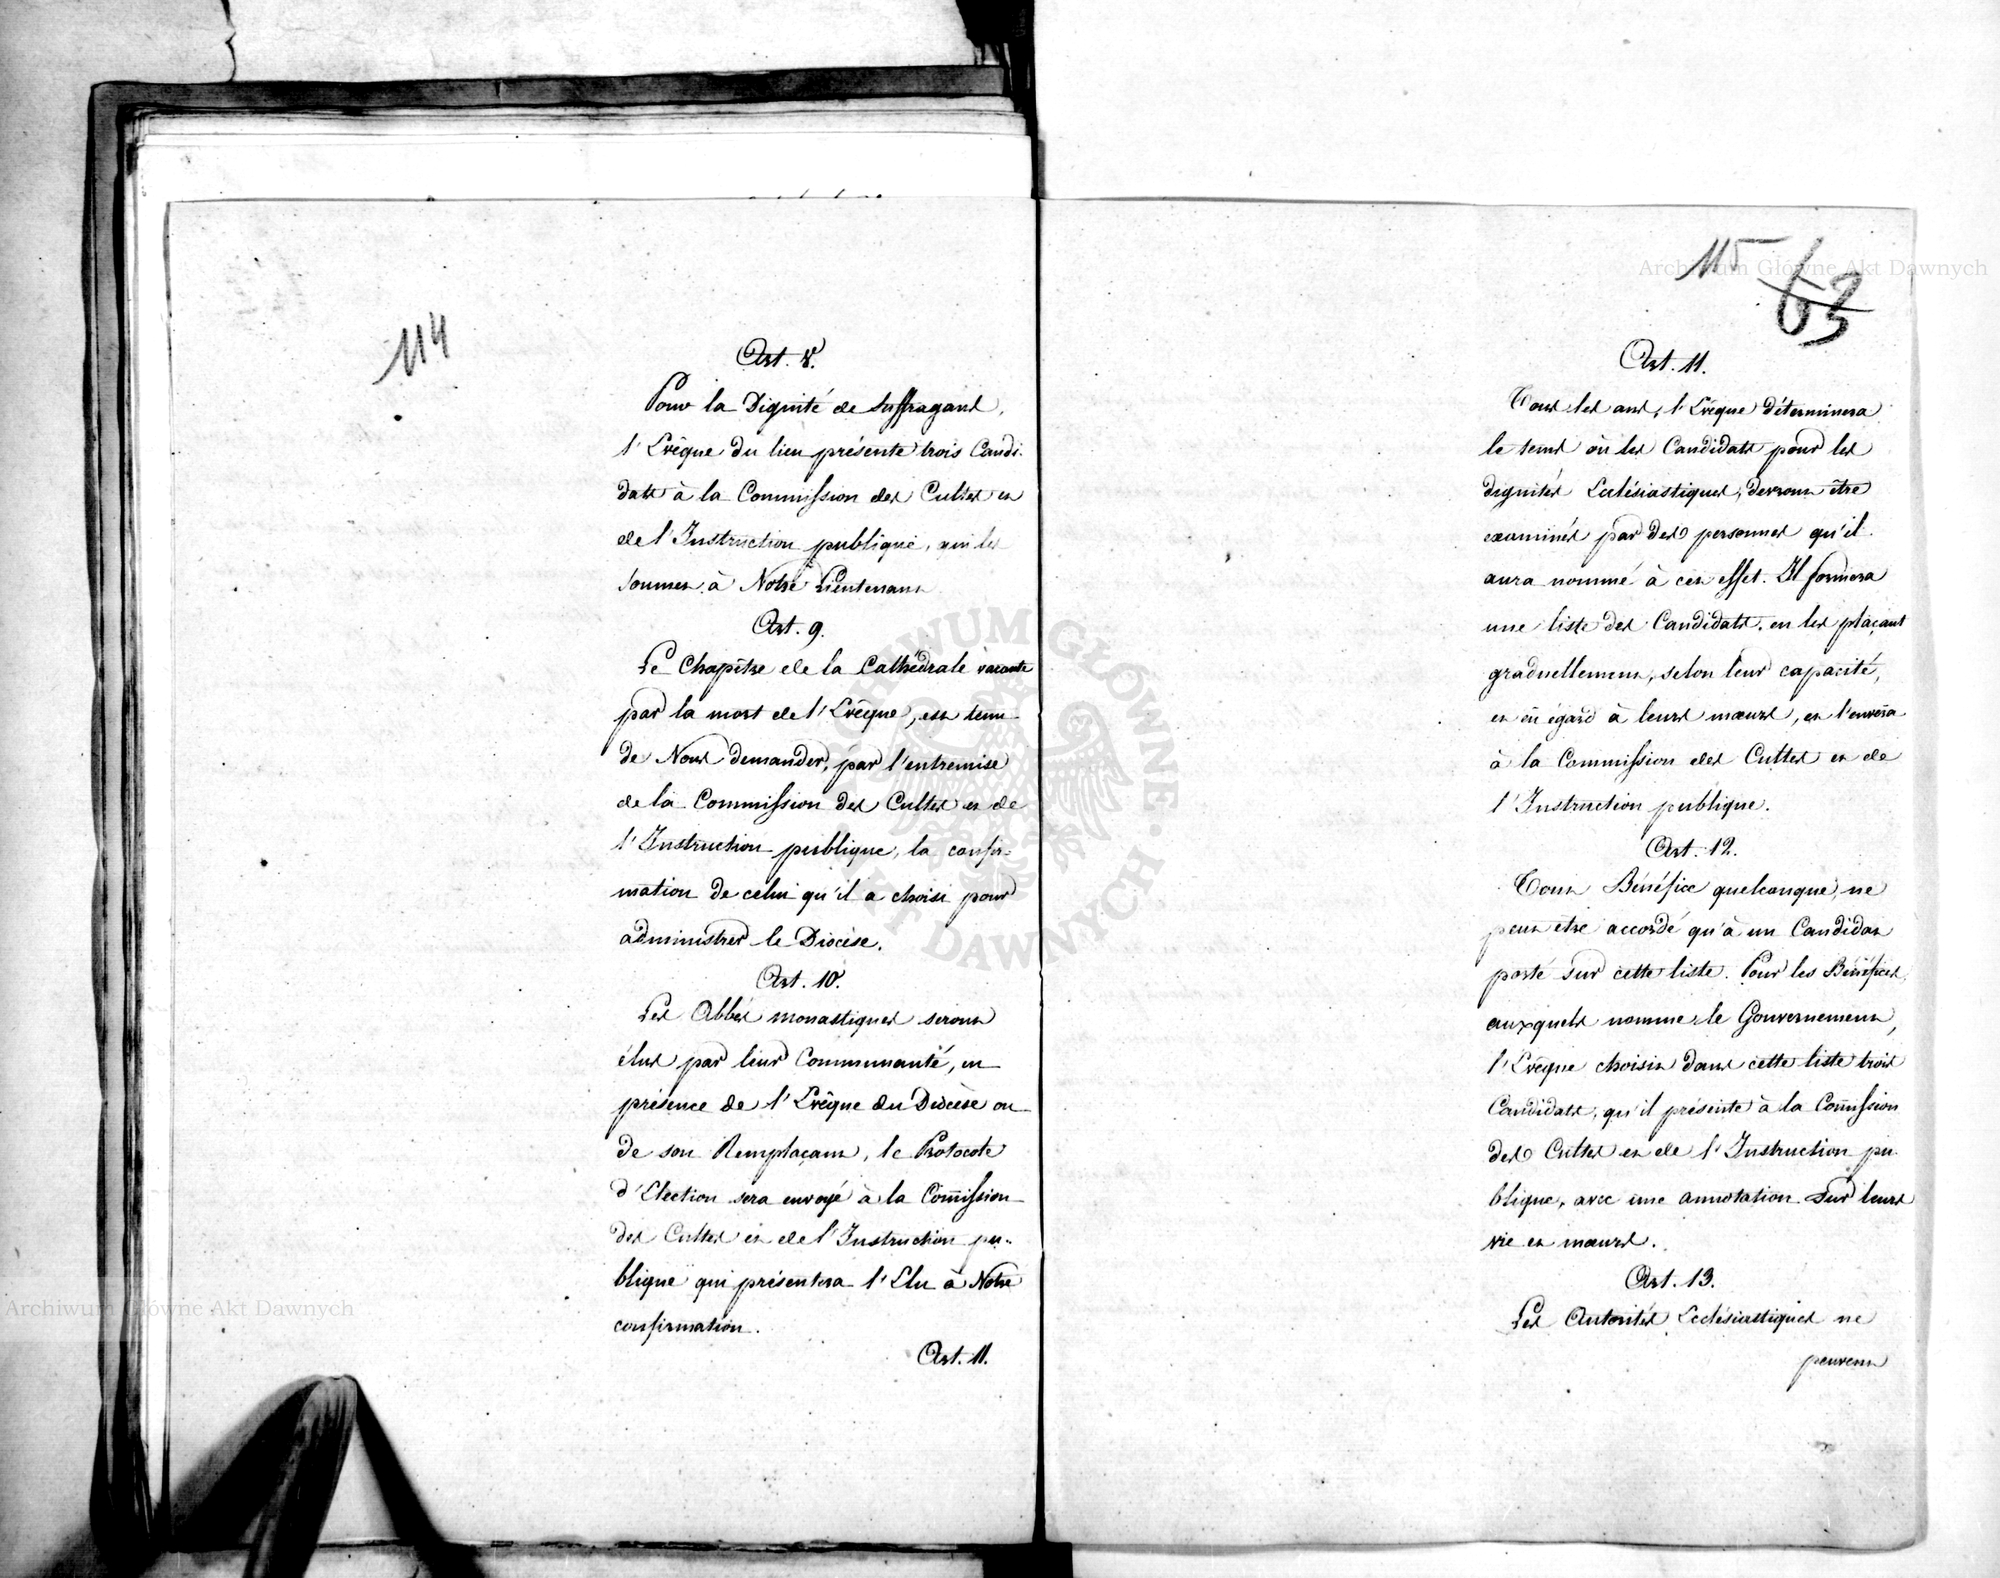 114
Art. 8.
Pour la Dignité de Suffragant,
l'Evêque du lieu présente trois Candi-
dats à la Commission des Cultes et
de l'Instruction publique, qui les
soumet à Notre Lieutenant
Art. 9.
Le Chapitre de la Cathédrale vacante
par la mort de l'Evêque, est tenu
de Nous demander, par l'entremise
de la Commission des Cultes et de
l'Instruction publique, la confir-
mation de celui qu'il a choisi pour
administrer le Diocèse.
Art. 10.
Les Abbés monastiques seront
élus par leur Communauté, en
présence de l'Evêque du Diocèse ou
de son Remplaçant, le Protocole
d'Election sera envoyé à la Com̄ission
des Cultes et de l'Instruction pu-
blique qui présentera l'Elu à Notre
confirmation.
Art. 11.
115
63
Art. 11.
Tous les ans, l'Evêque déterminera
le tems où les Candidats pour les
dignités Eclésiastiques, devront être
examinés par des personnes qu'il
aura nommé à cet effet. Il formera
une liste des Candidats, en les plaçant
graduellement, selon leur capacité,
et eû égard à leurs mœurs, et l'enverra
à la Commission des Cultes et de
l'Instruction publique.
Art. 12.
Tout Bénéfice quelconque, ne
peut etre accordé qu'à un Candidat
porté sur cette liste. Pour les Bénéfices,
auxquels nomme le Gouvernement,
l'Evêque choisit dans cette liste trois
Candidats, qu'il présente à la Com̄ission
des Cultes et de l'Instruction pu-
blique, avec une annotation sur leurs
vie et mœurs.
Art. 13.
Les Autorités Ecclésiastiques ne
peuvent
Archiwum Główne Akt Dawnych
Archiwum Główne Akt Dawnych
ARCHIWUM GŁÓWNE AKT DAWNYCH